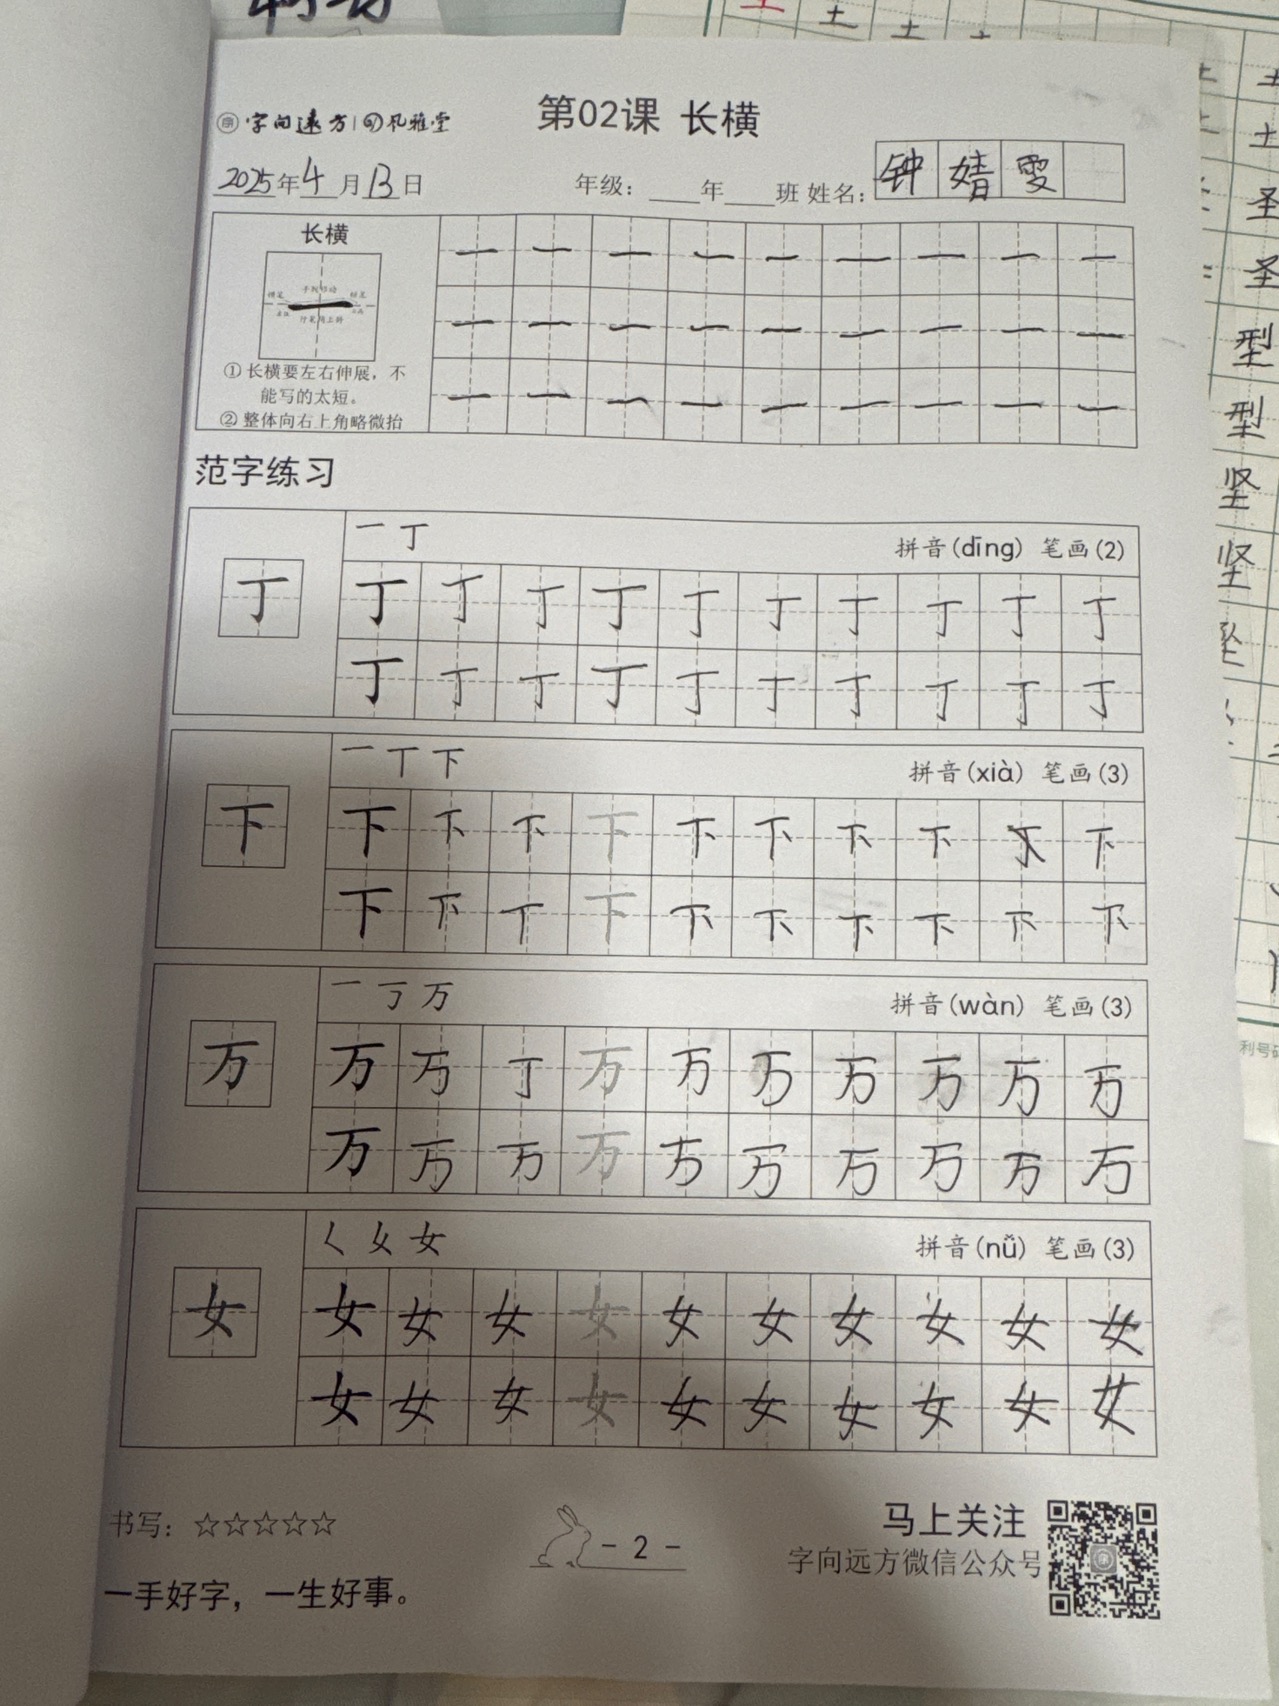 字向远方 凡雅堂
第02课 长横
2025年4月13日 年级：____年____班 姓名：钟婧雯
长横
① 长横要左右伸展，不
能写的太短。
② 整体向右上角略微抬
一 一 一 一 一 一 一 一 一
一 一 一 一 一 一 一 一 一
一 一 一 一 一 一 一 一 一
范字练习
一 丁 拼音(dīng) 笔画(2)
丁 丁 丁 丁 丁 丁 丁 丁 丁 丁 丁
丁 丁 丁 丁 丁 丁 丁 丁 丁 丁
一 丅 下 拼音(xià) 笔画(3)
下 下 下 下 下 下 下 下 下 下 下
下 下 丅 下 下 下 下 下 下 下
一 丁 万 拼音(wàn) 笔画(3)
万 万 万 丁 万 万 万 万 万 万 万
万 万 万 万 万 万 万 万 万 万
く 女 女 拼音(nǚ) 笔画(3)
女 女 女 女 女 女 女 女 女 女 女
女 女 女 女 女 女 女 女 女 女
书写：☆☆☆☆☆
- 2 -
马上关注
字向远方微信公众号
一手好字，一生好事。
土 土 土
土
圣
圣
型
型
坚
坚